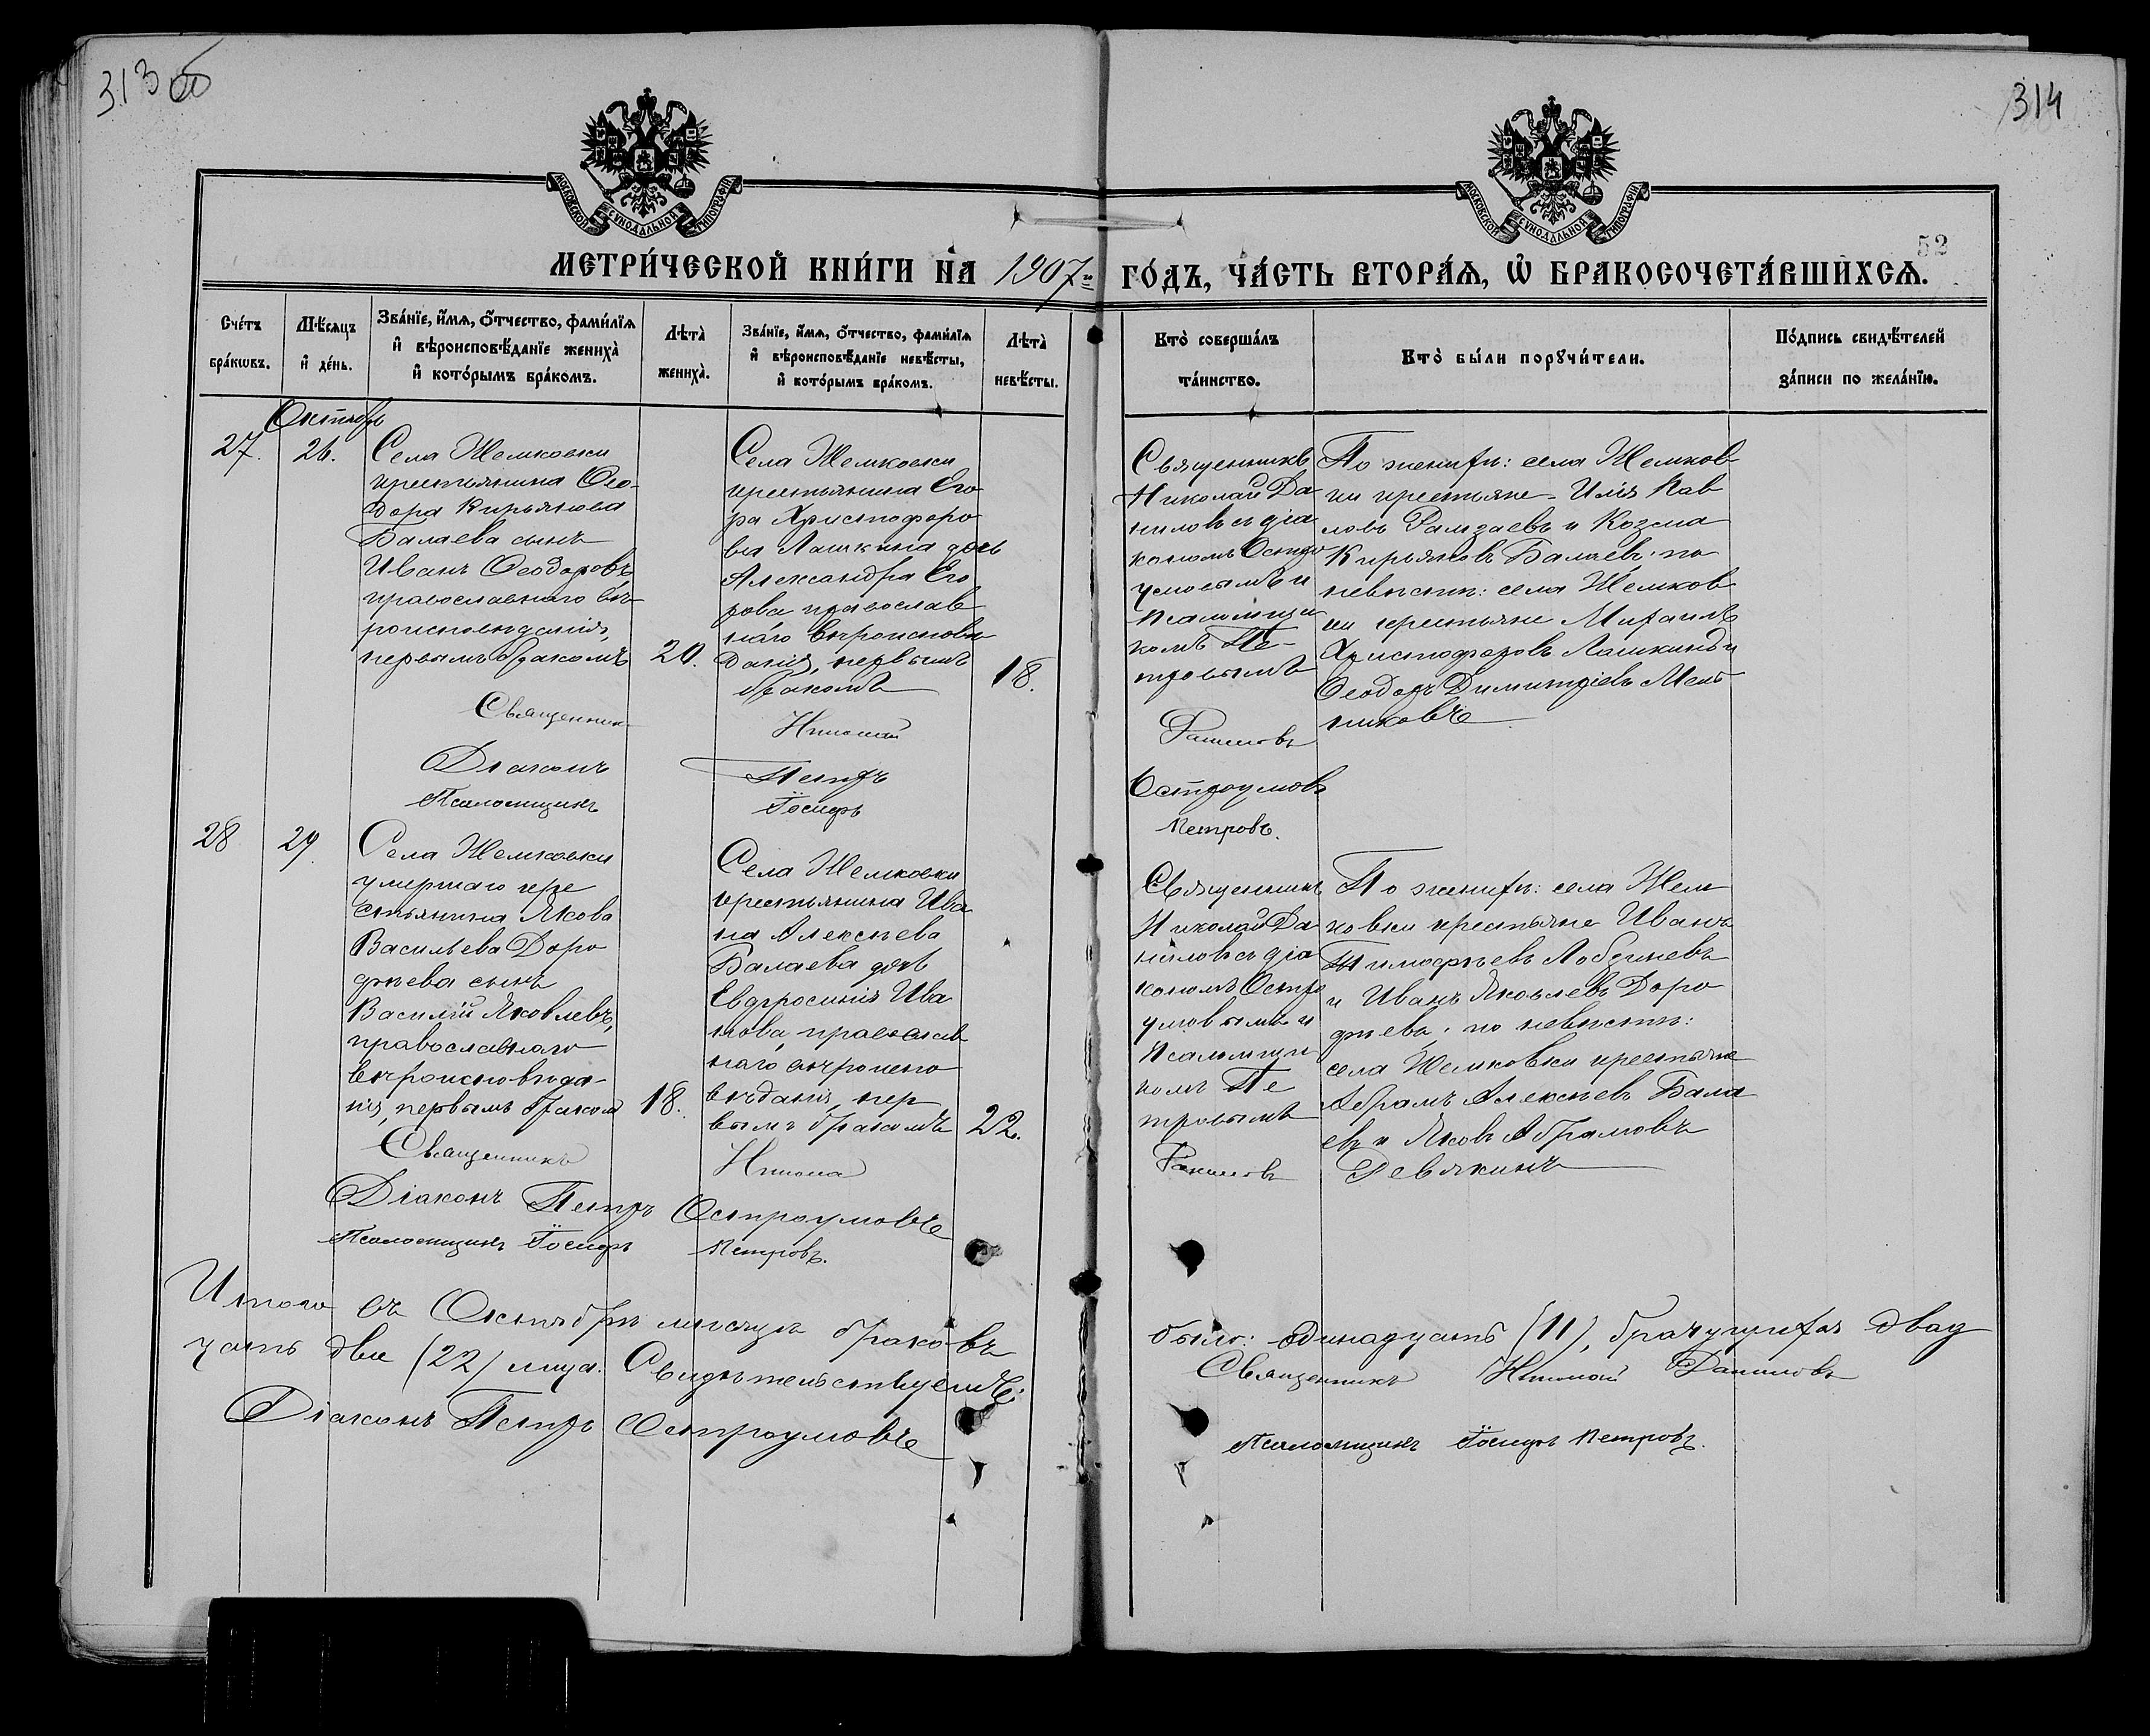 313 об
314
52
МОСКОВСКОЙ СѴНОДАЛЬНОЙ ТИПОГРАФІИ
МОСКОВСКОЙ СѴНОДАЛЬНОЙ ТИПОГРАФІИ
МЕТРИ́ЧЕСКОЙ КНИ́ГИ НА 1907й ГО́ДЪ, ЧА́СТЬ ВТОРА́Ѧ, Ѡ҆ БРАКОСОЧЕТА́ВШИХСѦ.
Сче́тъ
бра́кѡвъ.
Мѣ́сѧцъ
и҆ де́нь.
Зва́нїе, и҆́мѧ, ѻ҆́тчество, фами́лїѧ
и҆ вѣроисповѣ́данїе жениха̀
и҆ кото́рымъ бра́комъ.
Лѣта̀
жениха̀.
Зва́нїе, и҆́мѧ, ѻ҆́тчество, фами́лїѧ
и҆ вѣроисповѣ́данїе невѣ́сты,
и҆ кото́рымъ бра́комъ.
Лѣта̀
невѣ́сты.
Кто̀ соверша́лъ
та́инство.
Кто̀ бы́ли порꙋчи́тели.
По́дпись свидѣ́телей
за́писи по жела́нїю.
Октябрь
27.
26.
Села Жемковки
крестьянина Ѳео-
дора Кирьянова
Балаева сынъ
Иванъ Ѳеодоровъ,
православнаго вѣ-
роисповѣданія,
первымъ бракомъ
20.
Села Жемковки
крестьянина Его
ра Христофоро
ва Лашкина дочь
Александра Его
рова православ
наго вѣроисповѣ
данія, первымъ
бракомъ
18.
Священникъ
Николай Да
ниловъ съ діа
кономъ Остро
умовымъ и
псаломщи
комъ Пе-
тровымъ
По женихѣ: села Жемков
ки крестьяне Илія Пав
ловъ Рамзаевъ и Козма
Кирьяновъ Балаевъ; по
невѣстѣ: села Жемков
ки крестьяне Михаилъ
Христофоровъ Лашкинъ и
Ѳеодоръ Димитріевъ Мень
шиковъ
Священникъ Николай Даниловъ
Діаконъ Петръ Остроумовъ
Псаломщикъ Іосифъ Петровъ.
28
29.
Села Жемковки
умершаго кре
стьянина Якова
Васильева Доро
фѣева сынъ
Василій Яковлевъ,
православнаго
вѣроисповѣда-
нія, первымъ бракомъ
18.
Села Жемковки
крестьянина Ива
на Алексѣева
Балаева дочь
Евфросинія Ива
нова, православ
наго вѣроиспо
вѣданія, пер
вымъ бракомъ
22.
Священникъ
Николай Да
ниловъ съ діа
кономъ Остро
умовымъ и
псаломщи
комъ Пе
тровымъ
По женихѣ: села Жем
ковки крестьяне Иванъ
Тимофѣевъ
и Иванъ Яковлевъ Доро
фѣевъ; по невѣстѣ:
села Жемковки крестьяне
Абрамъ Алексѣевъ Бала
евъ и Яковъ Абрамовъ
Ревякинъ
Священникъ Николай Даниловъ
Діаконъ Петръ Остроумовъ
Псаломщикъ Іосифъ Петровъ.
Итого въ Октябрѣ мѣсяцѣ браковъ было: одинадцать (11), брачущихся двад
цать два (22) лица. Свидѣтельствуемъ: Священникъ Николай Даниловъ
Діаконъ Петръ Остроумовъ
Псаломщикъ Іосифъ Петровъ.